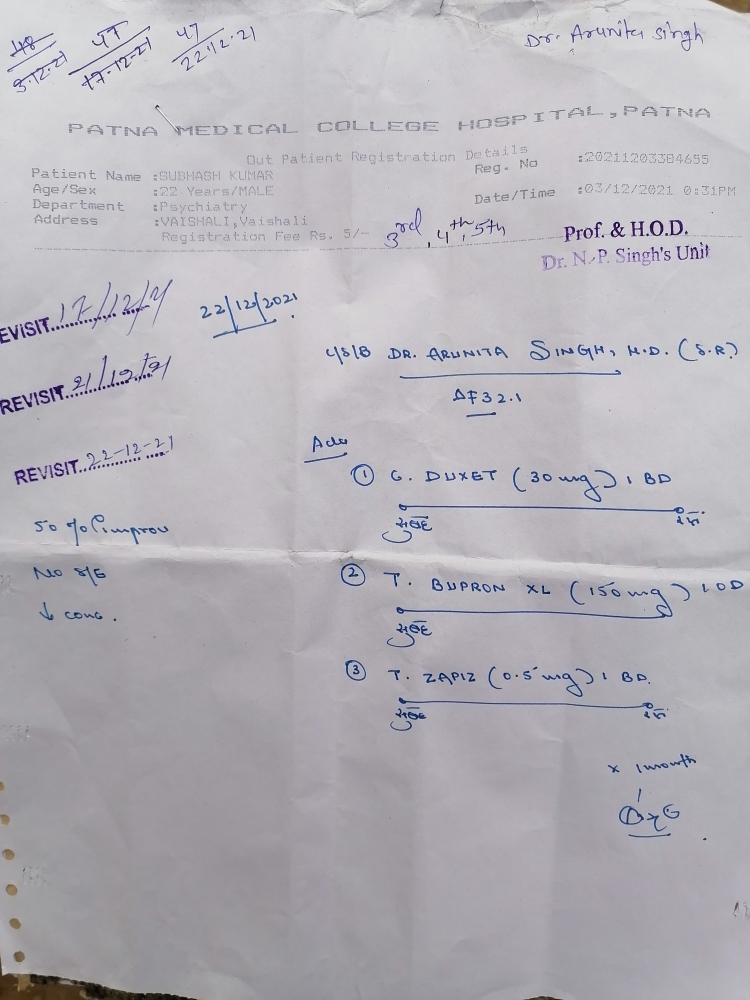 48
3-12-21
47
17-12-21
47
22.12.21
Dr. Arunita Singh
PATNA MEDICAL COLLEGE HOSPITAL,PATNA
Out Patient Registration Details
Reg. No :20211203384655
Patient Name :SUBHASH KUMAR
Age/Sex :22 Years/MALE
Date/Time :03/12/2021 0:31PM
Department :Psychiatry
Address :VAISHALI,Vaishali
Registration Fee Rs. 5/-
3rd, 4th, 5th
Prof. & H.O.D.
Dr. N. P. Singh's Unit
EVISIT 17/12/21
22/12/2021
REVISIT 21/12/21
REVISIT 22-12-21
DR. ARUNITA SINGH, M.D. (S.R)
F32.1
Adv
① C. DUXET (30 mg) 1 BD
सुबह
50 %
No S/E
↓ conc.
② T. BUPRON XL (150 mg) 1 OD
सुबह
③ T. ZAPIZ (0.5 mg) 1 BD.
सुबह
x 1 month